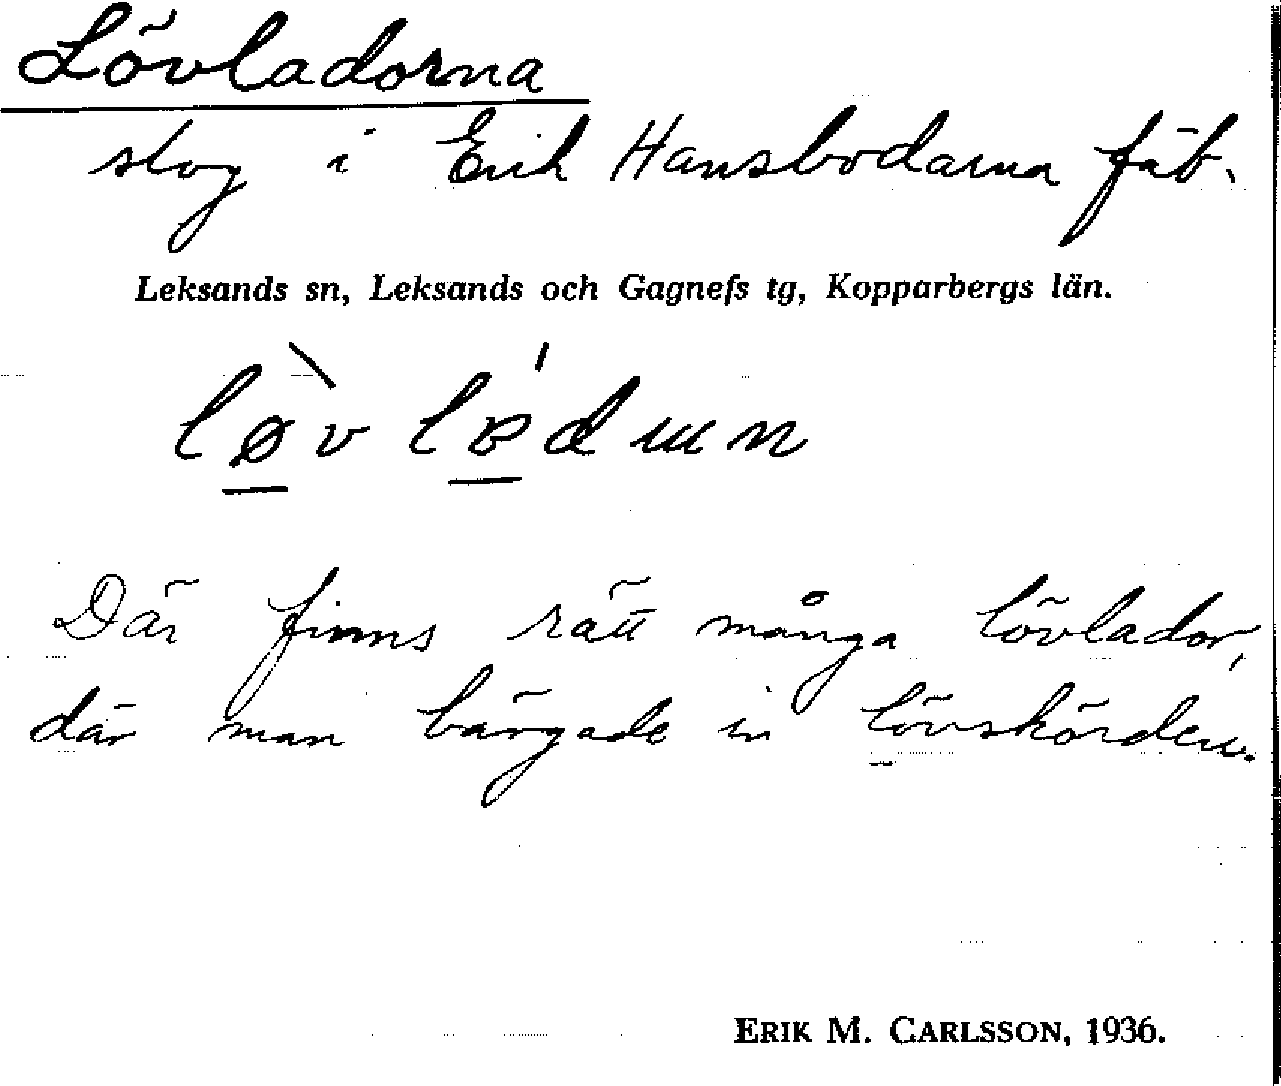 Lövladorna
slog i Erik Hansbodarna fäb.
Leksands sn, Leksands och Gagnefs tg, Kopparbergs län.
Där finns rätt många lövlador,
där man bärgade in lövskörden.
ERIK M. CARLSSON, 1936.